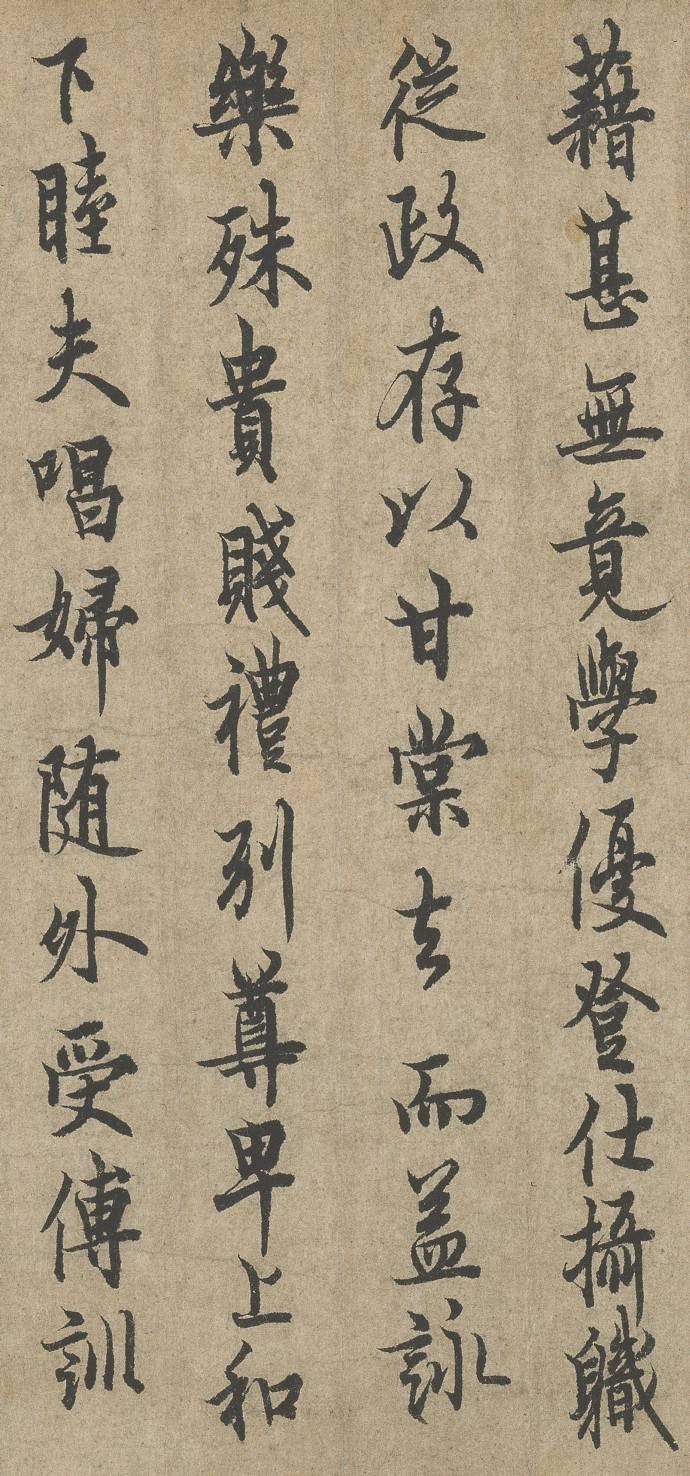 藉甚無竟學優登仕攝職
從政存以甘棠去而益詠
樂殊貴賤禮別尊卑上和
下睦夫唱婦随外受傅訓